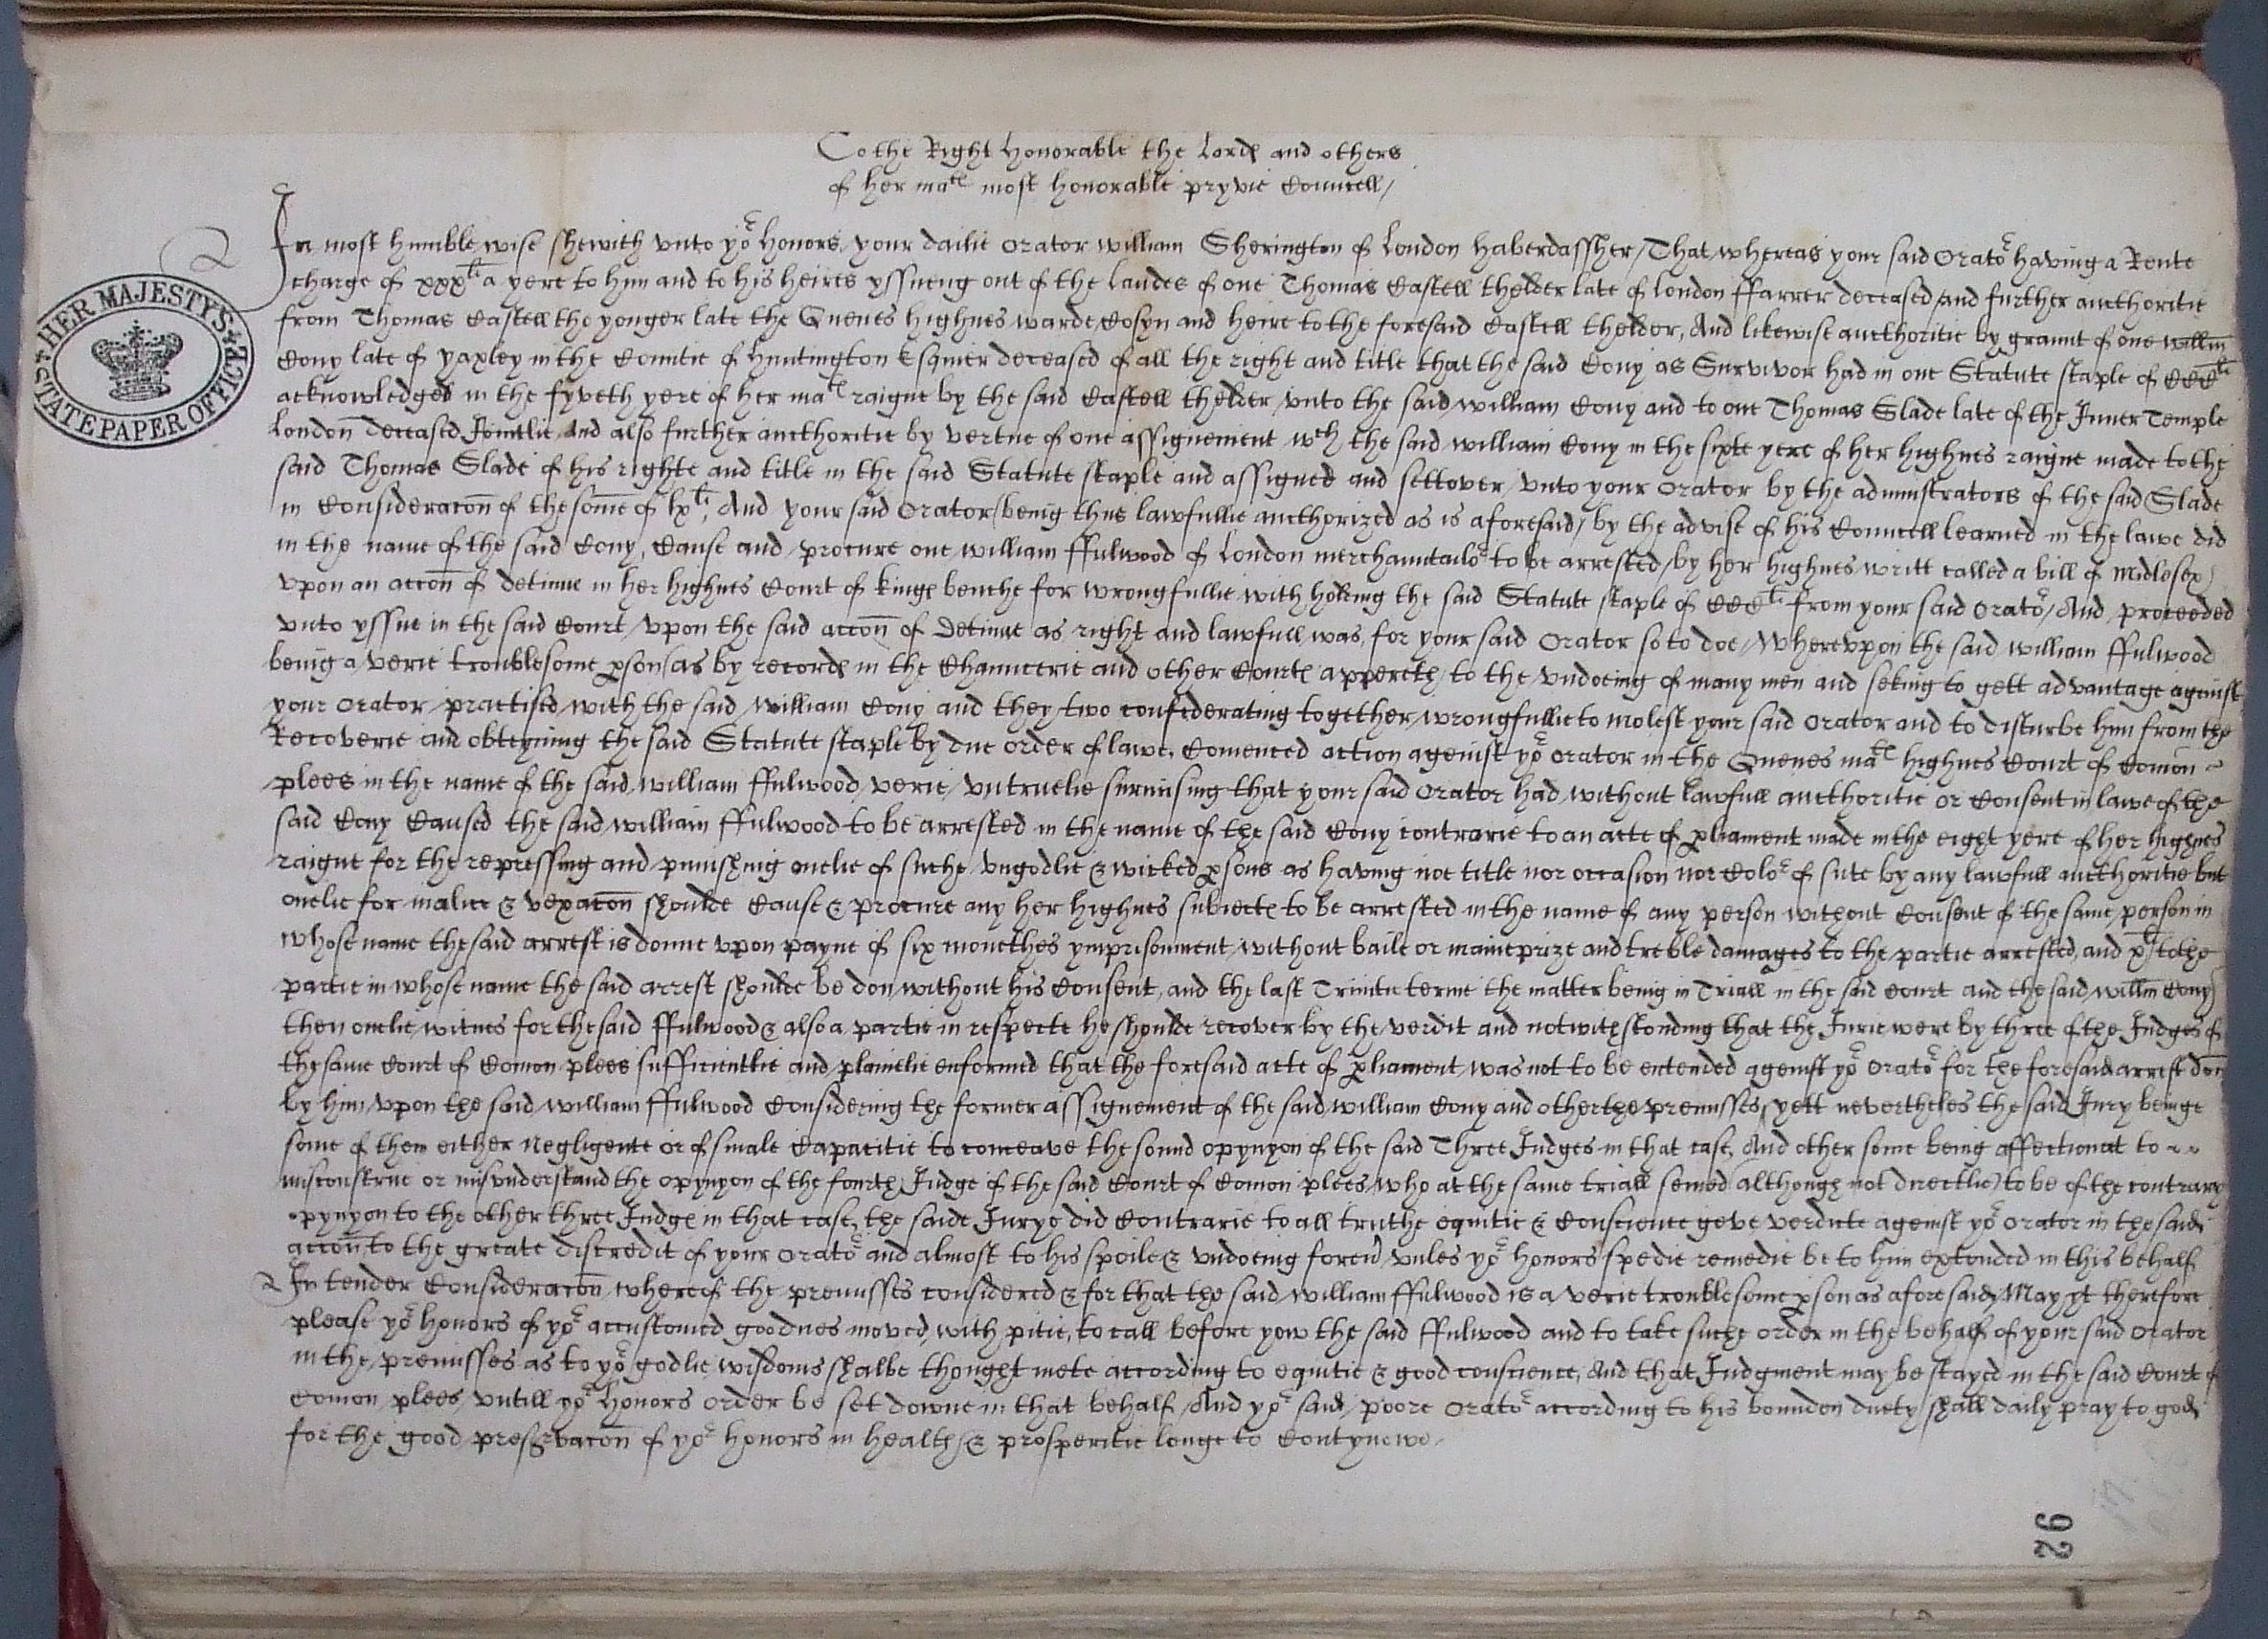 To the Right Honorable the Lordes and others
of her ma^tes most honorable pryvie Councell /
In most humble wise shewith vnto yo^r Honors your dailie Orator William Sherington of London Haberdassher / That whereas your said Orato^r having a Rente
charge of xxx^li a yere to him and to his heires yssueng out of the Landes of one Thomas Castell thelder late of London ffarrer deceased / and further aucthoritie
from Thomas Castell the yonger late the Quenes highnes warde, Cosyn and heire to the foresaid Castell thelder, And likewise aucthoritie by graunt of one Willm̄
Cony late of yaxley in the Countie of Huntington Esquier deceased of all the right and title that the said Cony as Survivor had in one Statute staple of CCC^li
acknowledged in the fyveth yere of her ma^tes raigne by the said Castell thelder vnto the said William Cony and to one Thomas Slade late of the Inner Temple
London deceased Jointlie And also further aucthoritie by vertue of one assignement w^ch the said William Cony in the sixte yere of her highnes raigne made to the
said Thomas Slade of his righte and title in the said Statute staple and assigned and settover vnto your Orator by the administrators of the said Slade
in Consideracōn of the som̄e of lx^li, And your said Orator (being thus lawfullie aucthorized as is aforesaid) by the advise of his Councell learned in the lawe did
in the name of the said Cony, Cause and procure one William ffulwood of London merchauntailo^r to be arrested / by her highnes writt called a bill of Midlesex /
vpon an accōn of detinue in her highnes Court of kinges benche for wrongfullie with holding the said Statute staple of CCC^li from your said Orato^r / And proceeded
vnto yssue in the said Court / vpon the said accōn of Detinue as right and lawfull was, for your said Orator so to doe / Wherevpon the said William ffulwood
being a verie troublesome ꝑson (as by recordes in the Chauncerie and other Courtes apperethe) to the vndoeing of many men and seking to gett advantage against
your Orator practised with the said William Cony and they two confiderating together wrongfullie to molest your said Orator and to disturbe him from the
Recoverie and obteyning the said Statute staple by due order of lawe, Comenced action ageinst yo^r Orator in the Quenes ma^tes highnes Court of Comōn
plees in the name of the said William ffulwood verie vntruelie surmising that your said Orator had without lawfull aucthoritie or Consent in lawe of the
said Cony Caused the said William ffulwood to be arrested in the name of the said Cony contrarie to an acte of ꝑliament made in the eight yere of her highnes
raigne for the repressing and punishing onelie of suche vngodlie & wicked ꝑsons as having not title nor occasion nor Colo^r of sute by any lawfull aucthoritie but
onelie for malice & vexacōn shoulde Cause & procure any her highnes subiectes to be arrested in the name of any person without Consent of the same person in
whose name the said arrest is donne vpon payne of six monethes ymprisonment without baile or maineprize and treble damages to the partie arrested, and x^li to the
partie in whose name the said arrest shoulde be don without his Consent, and the last Trinitie terme the matter being in Triall in the said Court and the said Willm̄ Cony
then onelie witnes for the said ffulwood & also a partie in respecte he shoulde recover by the verdit and notwithstonding that the Jurie were by three of the Judges of
the same Court of Comon plees sufficientlie and plainelie enformed that the foresaid acte of ꝑliament was not to be entended ageinst yo^r Orato^r for the foresaid arrest don
by him vpon the said William ffulwood Considering the former assignement of the said William Cony and other the premisses, yett nevertheles the said Jury beinge
some of them either negligente or of smale Capacitie to conceave the sound opynyon of the said Three Judges in that case, And other some being affectionat to
misconstrue or misvnderstand the opynyon of the fourth Judge of the said Court of Comon plees, who at the same triall semed (although not directlie) to be of the contrary
opynyon to the other three Judges in that case, the saide Jurye did Contrarie to all truthe equitie & Conscience geve verdicte ageinst yo^r Orator in the said
accōn to the greate discredit of your Orato^r and almost to his spoile & vndoeing forev^r vnles yo^r honors spedie remedie be to him extended in this behalf
In tender Consideracōn whereof the premisses considered & for that the said William ffulwood is a verie troublesome ꝑson as aforesaid, May yt therefore
please yo^r honors of yo^r accustomed goodnes moved with pitie, to call before yow the said ffulwood and to take suche order in the behalf of your said Orator
in the premisses as to yo^r godlie wisdoms shalbe thought mete according to equitie & good conscience, And that Judgment may be stayed in the said Court of
Comon plees vntill yo^r Honors order be set downe in that behalf / And yo^r said poore Orato^r according to his bounden duety shall daily pray to god
for the good preservacōn of yo^r honors in health & prosperitie longe to Contynewe.
HER MAJESTY'S STATE PAPER OFFICE
92